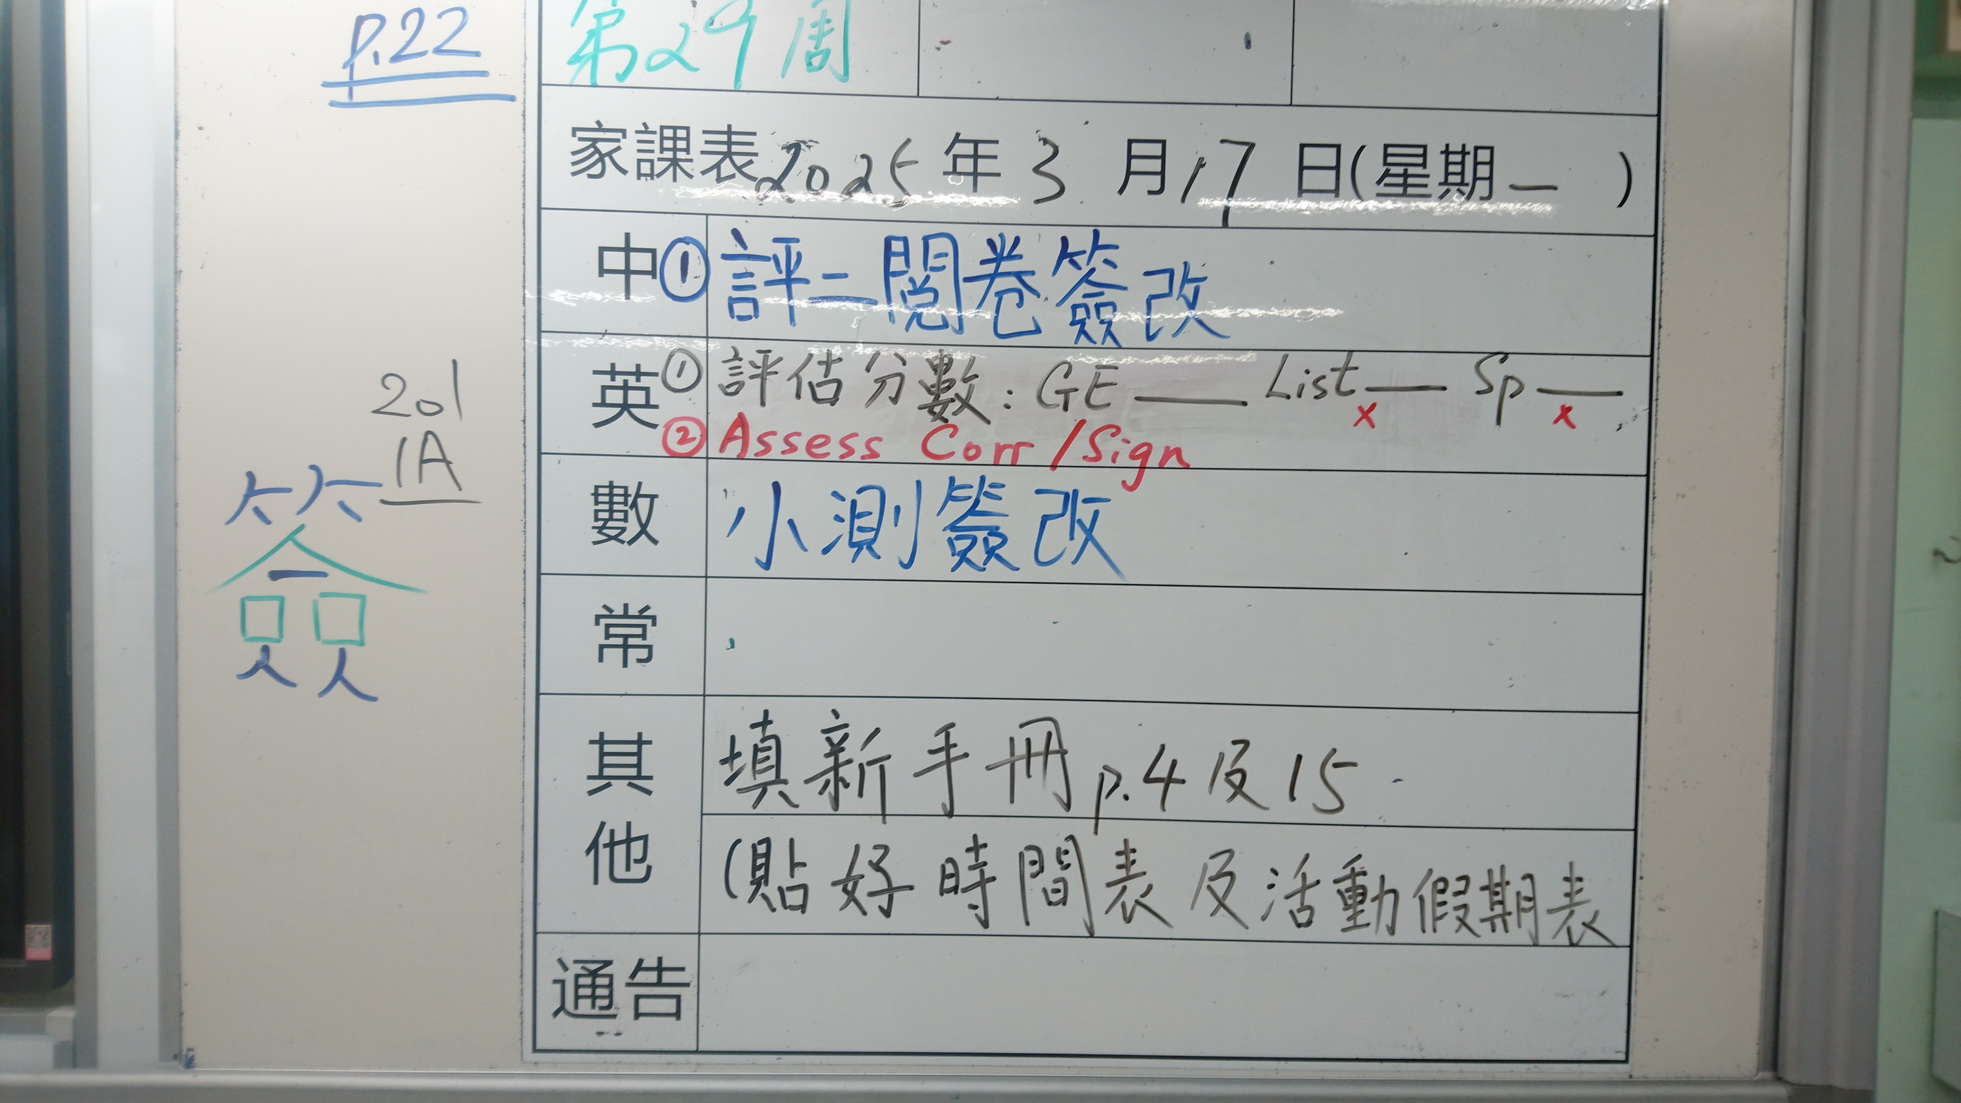 p.22
第29周
家課表2025年3月17日(星期一)
中①評二閱卷簽改
英①評估分數:GE___ List___ Sp___
x x
②Assess Corr/Sign
201
1A
簽
數 小測簽改
常
其他 填新手冊p.4及15
(貼好時間表及活動假期表
通告